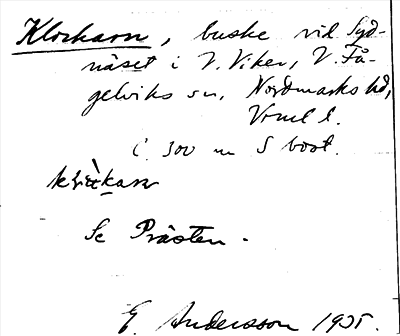 Klockaren, buske vid Syd-
näset i V. Viker, V. Få-
gelviks sn, Nordmarks hd,
Vrml l.
C. 300 m S bost.
Se Prästen.
E. Andersson 1935.